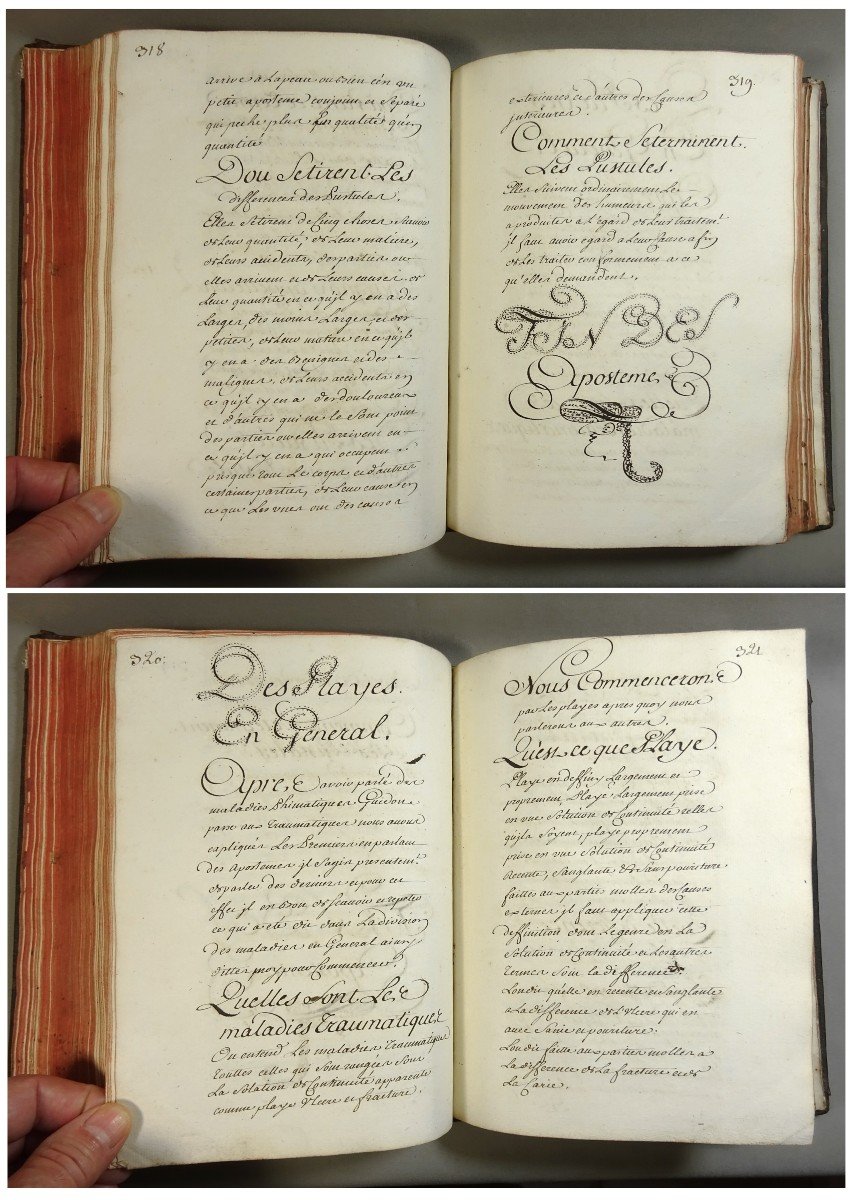 318
arrive a Lapeau ou bien c'en un
petit aposteme conjoint et Separé
qui peche plus En qualité qu'en
quantité
Dou Setirent Les
differences des Pustules.
Elles Setirent de Cinq choses Scavoir
de Leur quantité, de Leur matiere,
de Leurs accidents, des parties ou
elles arrivent et de Leurs causes. de
Leur quantité en ce qu'jl y en a des
Larges, des moins Larges, et des
petites, de Leur matiere en ce qu'jl
y en a des Benignes et des
malignes, de Leurs accidents en
ce qu'jl y en a des douloureux
et d'autres qui ne le Sont point
des parties ou elles arrivent en
ce qu'jl y en a qui occupent
presque tout Le corps et d'autres
certaines parties, de Leur cause en
ce que Les unes ont des causes
319
exterieures et d'autres des Causes
jnterieures.
Comment Seterminent
Les Pustules.
Elles Suivent ordinairement Le
mouvement des humeurs qui les
a produites a L'egard de Leur traitemt
jl faut avoir egard a Leur Cause afin
de Les traiter conformement a ce
qu'elles demandent.
FIN DES
Apostemes
320
Des Playes.
En General.
Apres avoir parlé des
maladies Phimatiques Guidon
passe aux Traumatiques nous avons
expliqués Les Premiers en parlant
des Apostemes jl Sagit presentemt
de parler des derniers et pour cet
effet jl en Bon de Scavoir et repeter
ce qui a été dit dans La division
des maladies en General ainsy
dittes moy pour Commencer.
Quelles Sont Les
maladies Traumatiques
On entend Les maladies Traumatiques
toutes celles qui Sont rangées Sous
La Solution de Continuité apparente
comme playe Ulcere et fracture.
321
Nous Commencerons
par Les playes apres quoy nous
parlerons aux autres.
Qu'est ce que Playe.
Playe en deffiny Largement et
proprement, Playe Largement prise
en une Solution de Continuité telles
qu'jls Soyent, playe proprement
prise en une Solution de Continuité
Recente, Sanglante et Sans pourriture
faittes aux parties molles des Causes
externes jl faut appliquer cette
deffinition dont Le genre en La
Solution de Continuité et Les autres
termes Sont la difference
Lon dit qu'elle en recente et Sanglante
a La difference de L'Ulcere qui en
avec Sanie et pouriture.
Lon dit faitte aux parties molles a
La difference de La fracture et de
La Carie.